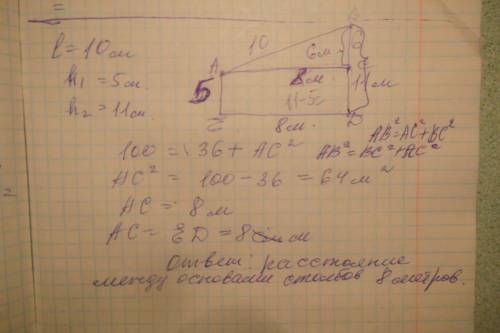 l = 10 см
h₁ = 5 см.
h₂ = 11 см.
A
10
B
6 см.
C
8 см.
11 м
5
11-5
E
8 м.
D
AB² = AC² + BC²
100 = 36 + AC² AB² = BC² + AC²
AC² = 100 - 36 = 64 м²
AC = 8 м
AC = ED = 8 м
Ответ: расстояние
между основами столбов 8 метров.